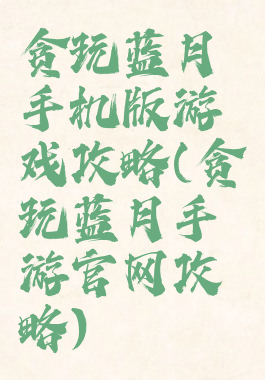 贪玩蓝月
手机版游
戏攻略(贪
玩蓝月手
游官网攻
略)